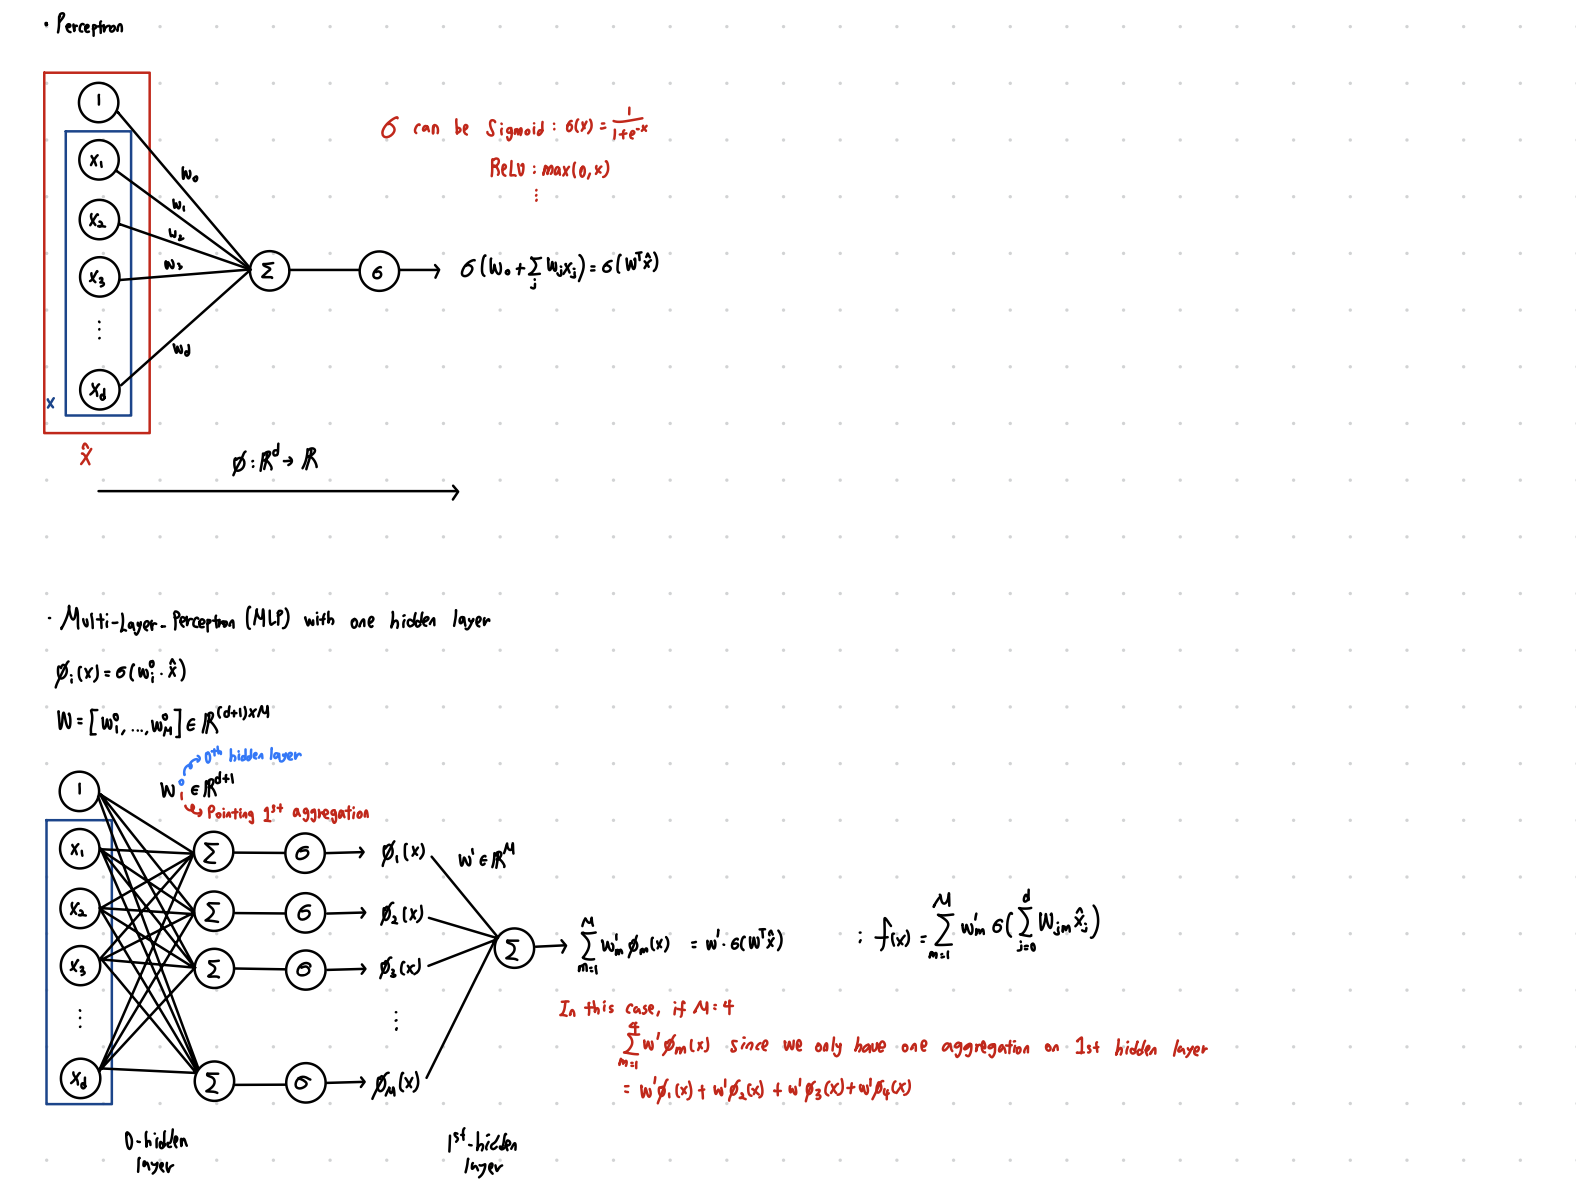 · Perceptron
1
x₁
x₂
x₃
⋮
x_d
x
x̂
w₀
w₁
w₂
w₃
w_d
Σ
σ
σ can be Sigmoid : σ(x) = 1/(1+e^-x)
ReLU : max(0, x)
⋮
σ(w₀ + Σ_j w_j x_j) = σ(Wᵀx̂)
Ø : ℝ^d → ℝ
· Multi-Layer-Perceptron (MLP) with one hidden layer
Ø_i(x) = σ(w_i^0 · x̂)
W = [w_1^0, ..., w_M^0] ∈ ℝ^((d+1)×M)
0th hidden layer
w_1^0 ∈ ℝ^(d+1)
Pointing 1st aggregation
1
x₁
x₂
x₃
⋮
x_d
Σ σ Ø₁(x)
Σ σ Ø₂(x)
Σ σ Ø₃(x)
⋮
Σ σ Ø_M(x)
w' ∈ ℝ^M
Σ
Σ_{m=1}^{M} w'_m Ø_m(x) = w' · σ(Wᵀx̂)
: f(x) = Σ_{m=1}^{M} w'_m σ(Σ_{j=0}^{d} W_jm x̂_j)
In this case, if M=4
Σ_{m=1}^{4} w' Ø_m(x) since we only have one aggregation on 1st hidden layer
= w'Ø₁(x) + w'Ø₂(x) + w'Ø₃(x) + w'Ø₄(x)
0-hidden
layer
1st-hidden
layer